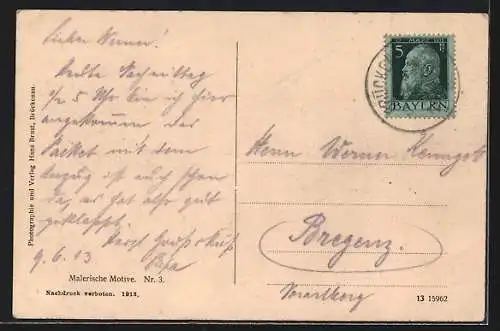 Lieber Werner!
heute Nachmittag
½ 5 Uhr bin ich hier
angekommen das
Packet mit dem
Anzug ist auch schon
da, es hat also gut
geklappt.
Papa
9.6.13
Malerische Motive. Nr. 3.
Nachdruck verboten. 1913.
Photographie und Verlag Hans Brust, Brückenau.
5
BAYERN
Herrn Werner
Bregenz.
Vorarlberg
13 15962